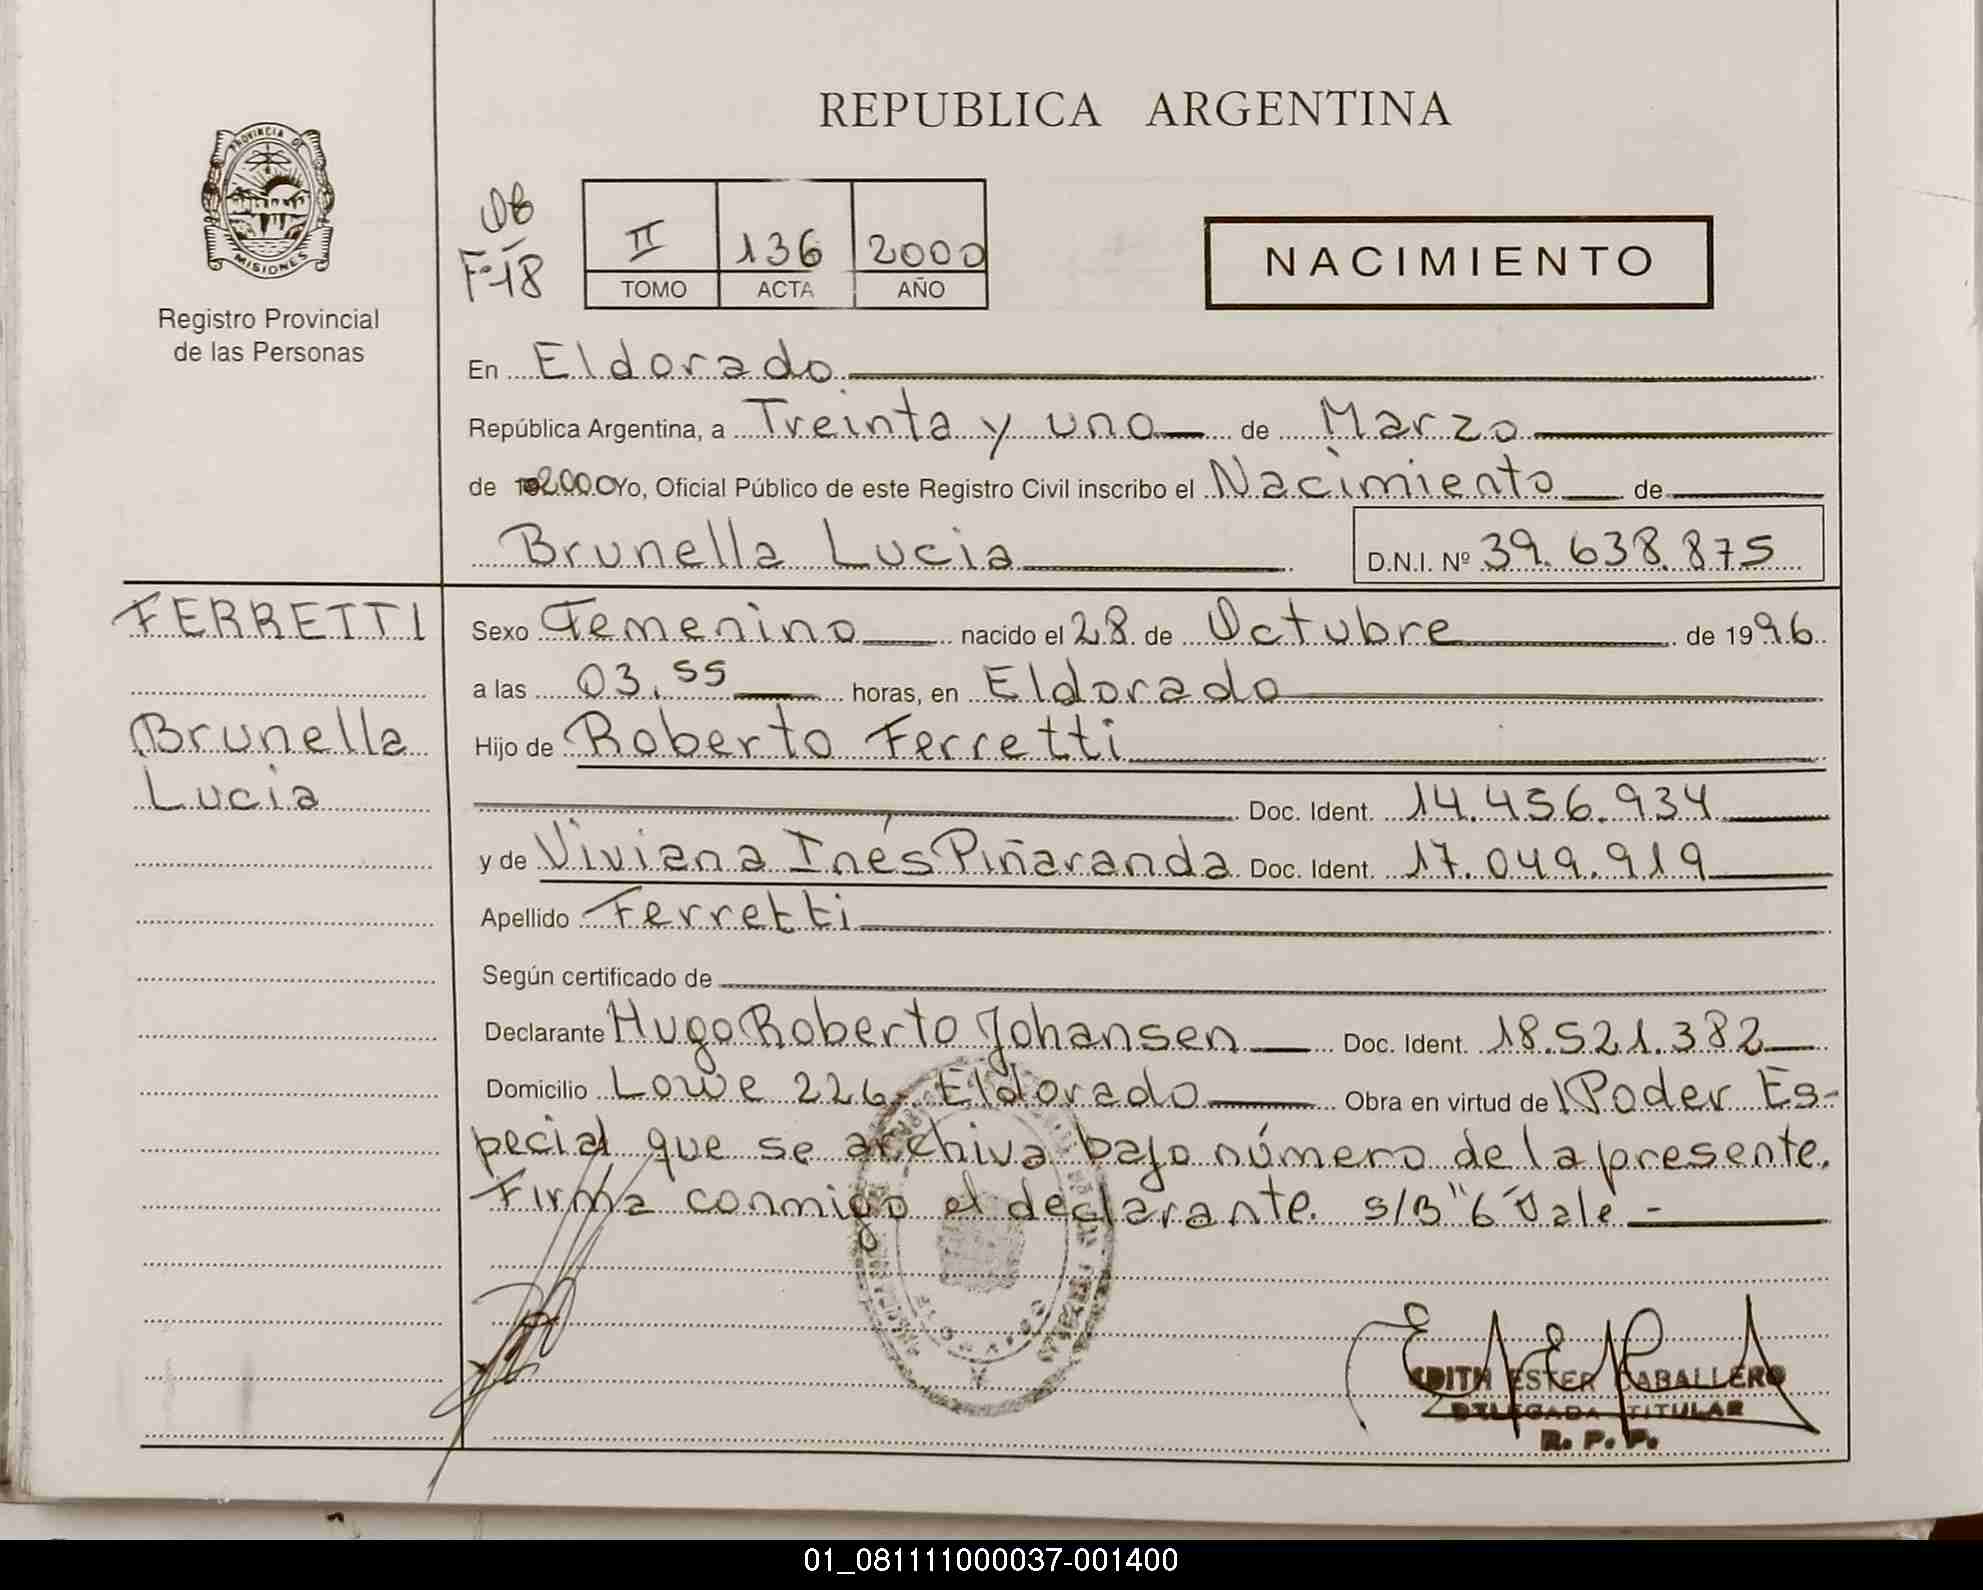 REPUBLICA ARGENTINA
PROVINCIA DE
MISIONES
Registro Provincial
de las Personas
F-18
II 136 2000
TOMO ACTA AÑO
NACIMIENTO
En Eldorado
República Argentina, a Treinta y uno de Marzo
de 2000 Yo, Oficial Público de este Registro Civil inscribo el Nacimiento de
Brunella Lucia D.N.I. Nº 39.638.875
FERRETTI
Brunella
Lucia
Sexo Femenino nacido el 28 de Octubre de 1996
a las 03,55 horas, en Eldorado
Hijo de Roberto Ferretti
Doc. Ident. 14.456.934
y de Viviana Inés Piñaranda Doc. Ident. 17.049.919
Apellido Ferretti
Según certificado de
Declarante Hugo Roberto Johansen Doc. Ident. 18.521.382
Domicilio Lowe 226, Eldorado Obra en virtud de Poder Es-
pecial que se archiva bajo número de la presente.
Firma conmigo el declarante. s/B "6" Vale -
EDITH ESTER CABALLERO
DELEGADA TITULAR
R. P. P.
01_081111000037-001400